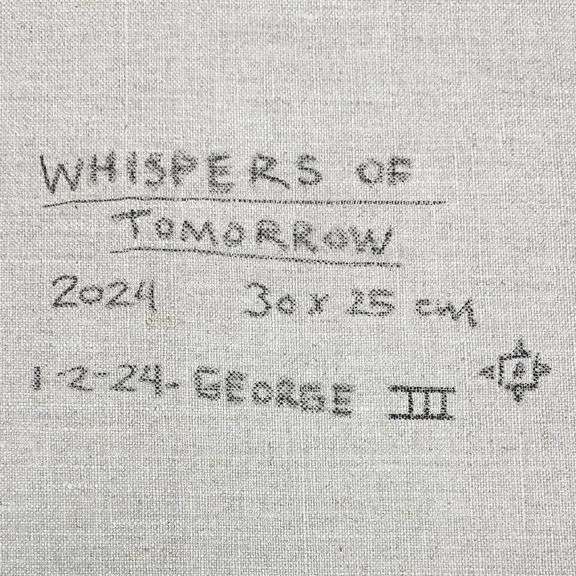 WHISPERS OF
TOMORROW
2024 30 x 25 cm
1-2-24- GEORGE III